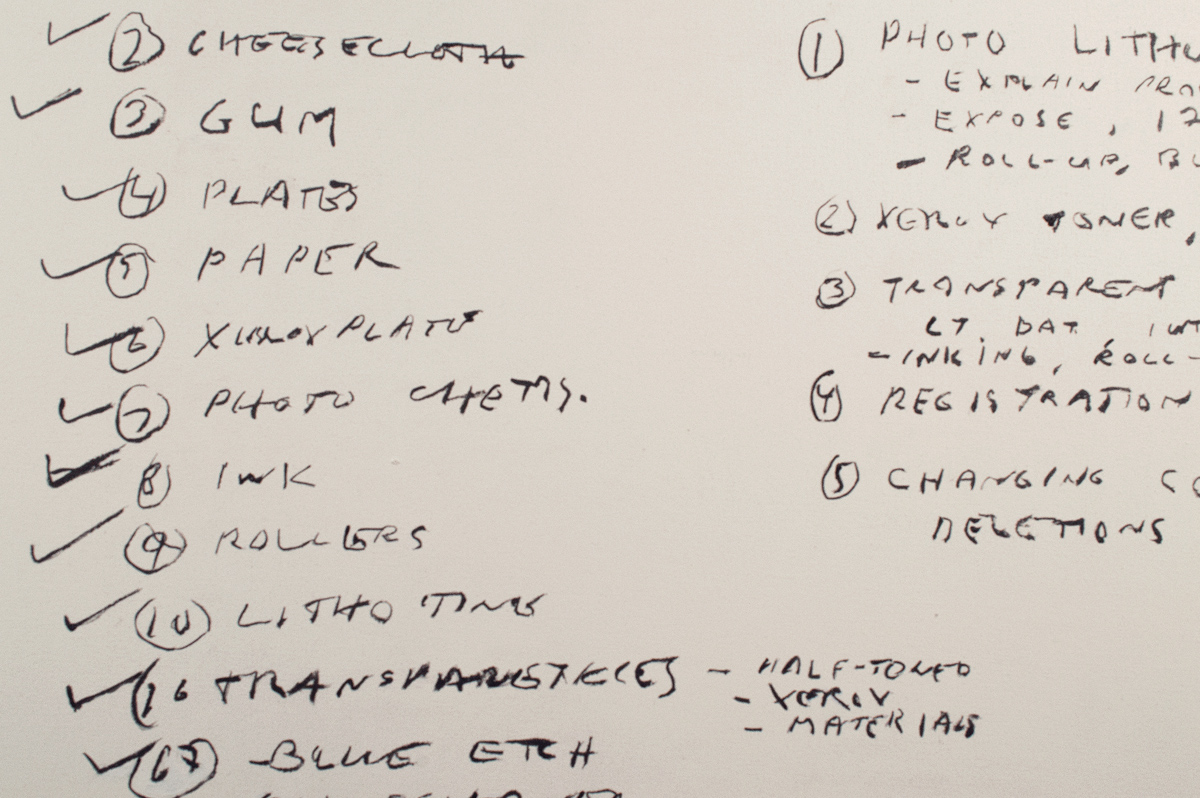 ② CHEESECLOTH
③ GUM
④ PLATES
⑤ PAPER
⑥ XEROX PLATE
⑦ PHOTO CHEMS.
⑧ INK
⑨ ROLLERS
⑩ LITHO TINE
16 TRANSPARENCIES - HALF-TONED
- XEROX
- MATERIALS
BLUE ETCH
① PHOTO LITHO
- EXPLAIN
- EXPOSE,
- ROLL-UP,
② XEROX TONER,
③ TRANSPARENT
LT. DAT.
- INKING, ROLL-
④ REGISTRATION
⑤ CHANGING
DELETIONS